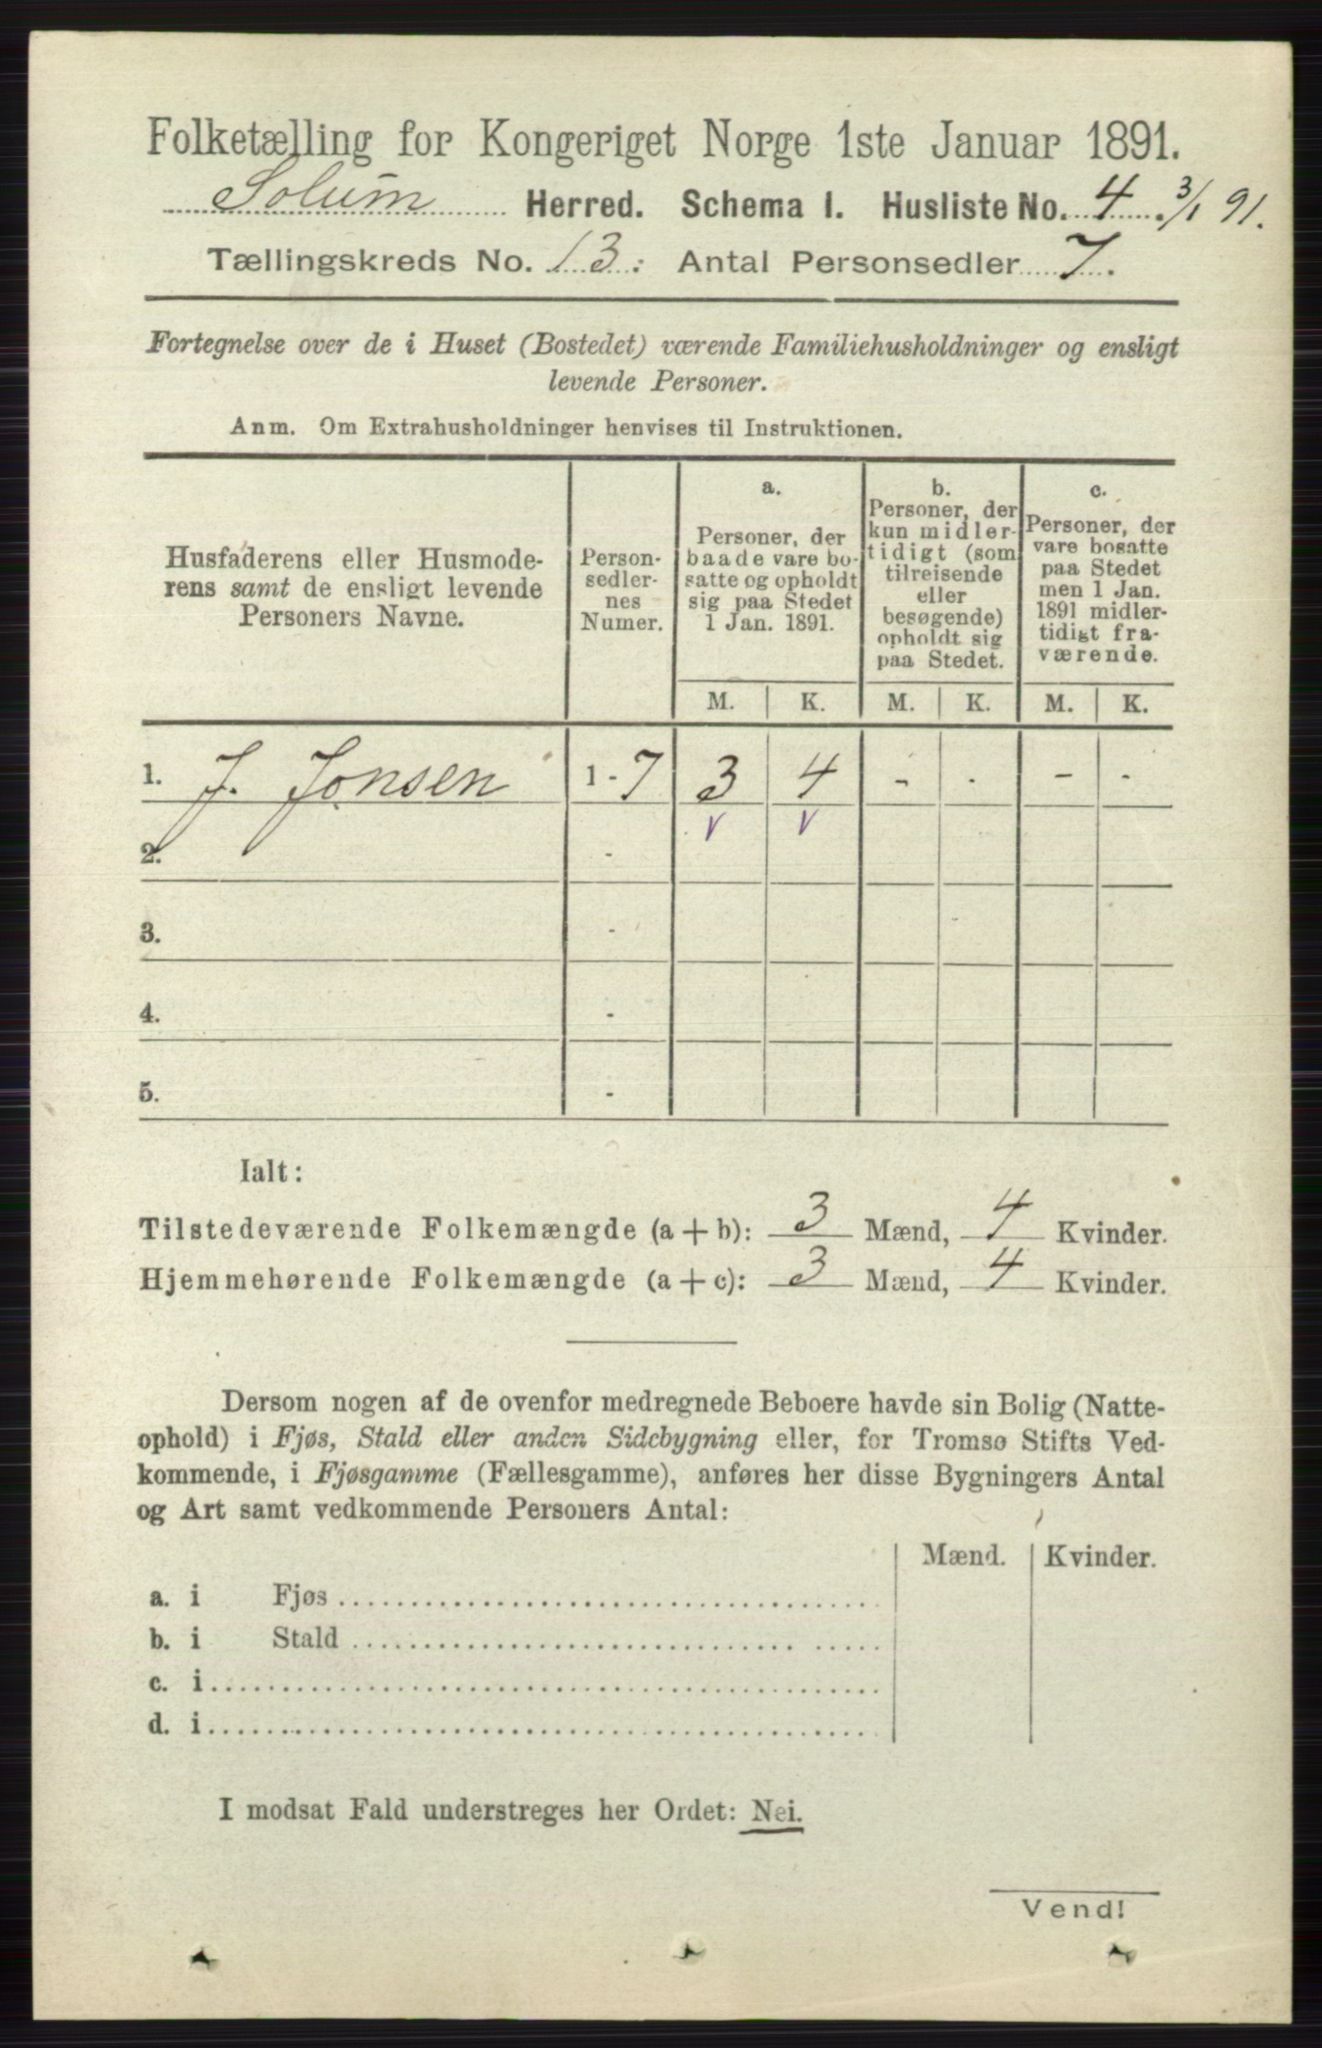 Folketælling for Kongeriget Norge 1ste Januar 1891.
Solum Herred. Schema I. Husliste No. 4. 3/1 91.
Tællingskreds No. 13: Antal Personsedler 7.
Fortegnelse over de i Huset (Bostedet) værende Familiehusholdninger og ensligt
levende Personer.
Anm. Om Extrahusholdninger henvises til Instruktionen.
Husfaderens eller Husmode-
rens samt de ensligt levende
Personers Navne.
Person-
sedler-
nes
Numer.
a.
Personer, der
baade vare bo-
satte og opholdt
sig paa Stedet
1 Jan. 1891.
b.
Personer, der
kun midler-
tidigt (som
tilreisende
eller
besøgende)
opholdt sig
paa Stedet.
c.
Personer, der
vare bosatte
paa Stedet
men 1 Jan.
1891 midler-
tidigt fra-
værende.
M. K. M. K. M. K.
1. J. Jonsen 1 - 7 3 4 - - - -
v v
2. -
3. -
4. -
5. -
Ialt:
Tilstedeværende Folkemængde (a + b): 3 Mænd, 4 Kvinder.
Hjemmehørende Folkemængde (a + c): 3 Mænd, 4 Kvinder.
Dersom nogen af de ovenfor medregnede Beboere havde sin Bolig (Natte-
ophold) i Fjøs, Stald eller anden Sidebygning eller, for Tromsø Stifts Ved-
kommende, i Fjøsgamme (Fællesgamme), anføres her disse Bygningers Antal
og Art samt vedkommende Personers Antal:
Mænd. Kvinder.
a. i Fjøs
b. i Stald
c. i
d. i
I modsat Fald understreges her Ordet: Nei.
Vend!